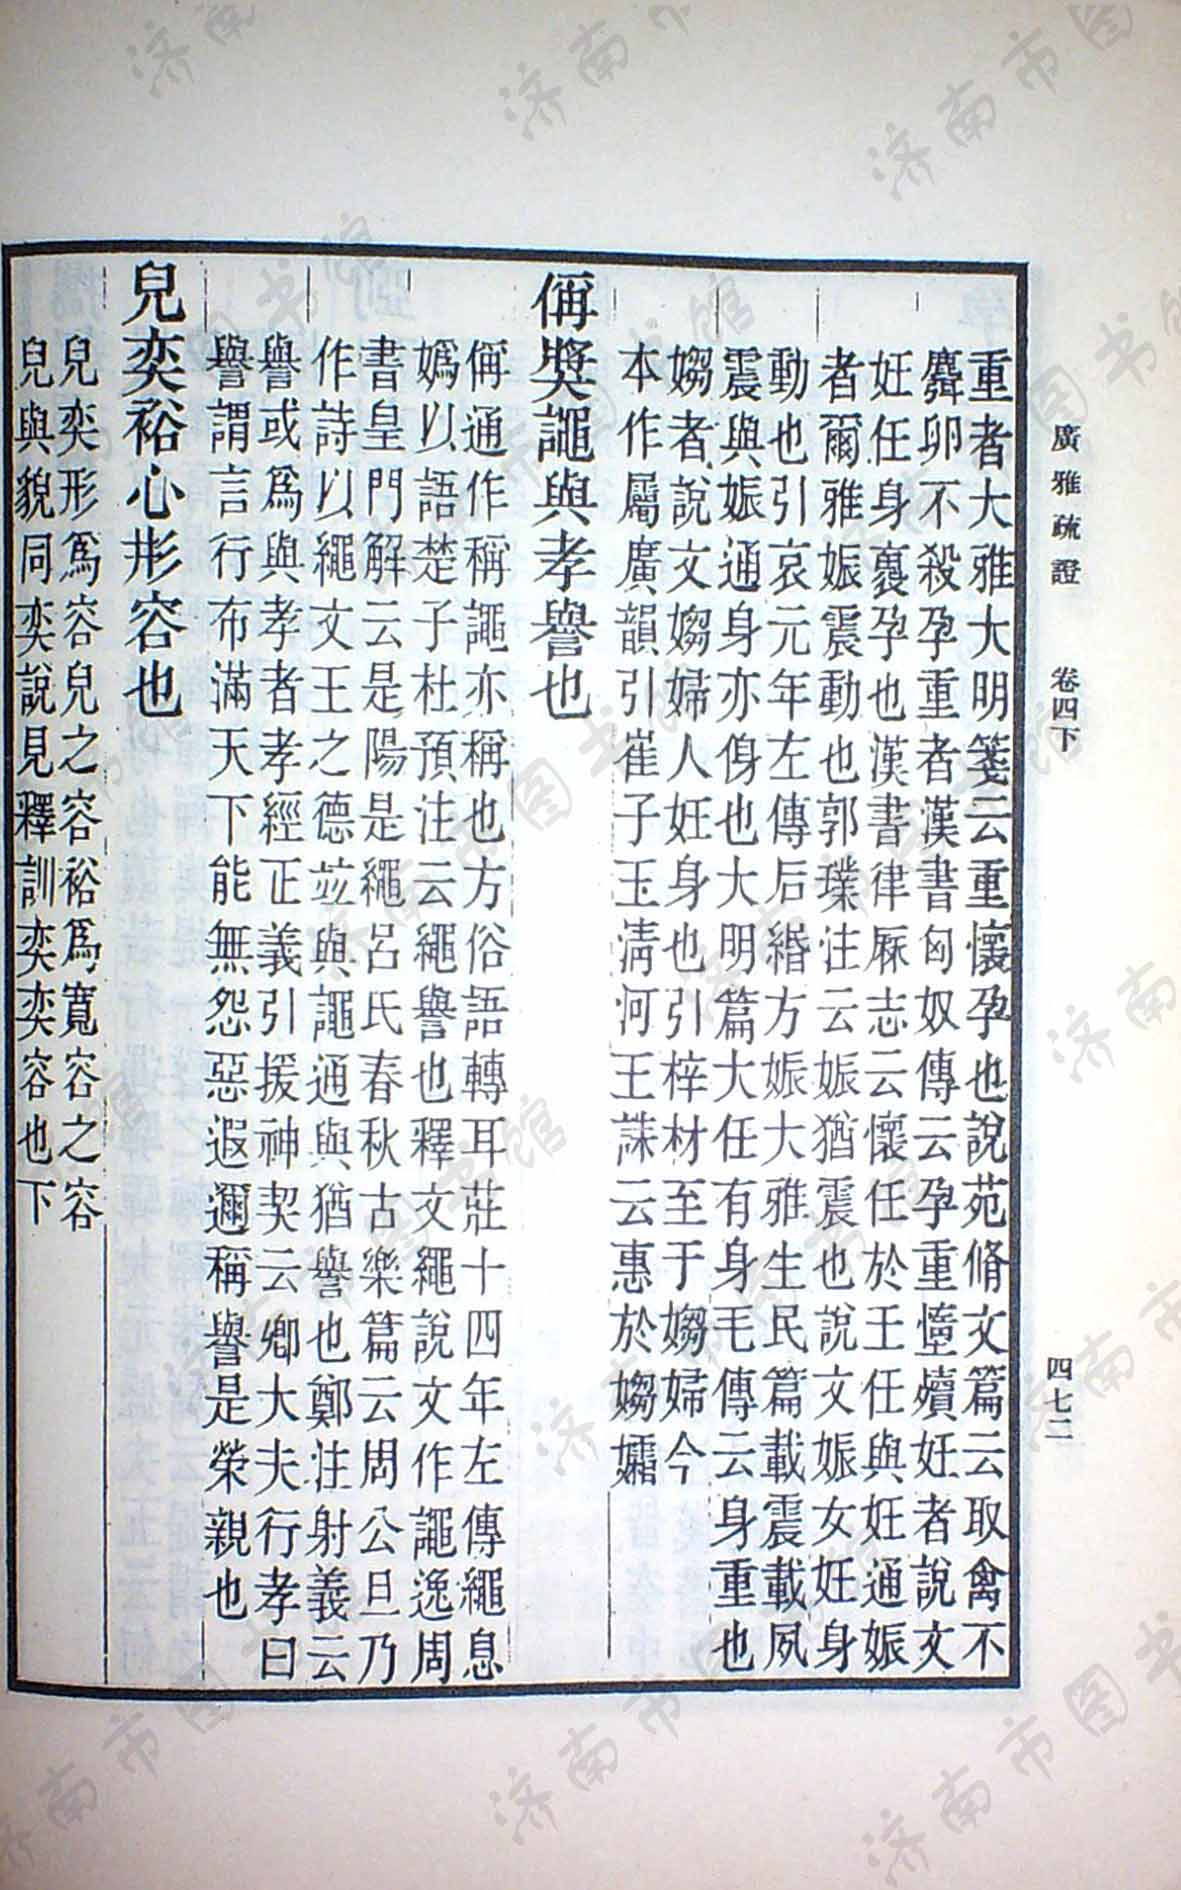 廣雅疏證　卷四下　四七二
重者大雅大明箋云重懷孕也說苑脩文篇云取禽不
麛卵不殺孕重者漢書匈奴傳云孕重墯殰妊者說文
妊任身裹孕也漢書律厤志云懷任於壬任與妊通娠
者爾雅娠震動也郭璞注云娠猶震也說文娠女妊身
動也引哀元年左傳后緡方娠大雅生民篇載震載夙
震與娠通身亦㑗也大明篇大任有身毛傳云身重也
媰者說文媰婦人妊身也引梓材至于媰婦今
本作屬廣韻引崔子玉淸河王誄云惠於媰孀
偁奬譝與孝譽也
偁通作稱譝亦稱也方俗語轉耳莊十四年左傳繩息
嬀以語楚子杜預注云繩譽也釋文繩說文作譝逸周
書皇門解云是陽是繩呂氏春秋古樂篇云周公旦乃
作詩以繩文王之德竝與譝通與猶譽也鄭注射義云
譽或爲與孝者孝經正義引援神契云卿大夫行孝曰
譽謂言行布滿天下能無怨惡遐邇稱譽是榮親也
皃奕裕心形容也
皃奕形爲容皃之容裕爲寬容之容
皃與貌同奕說見釋訓奕奕容也下